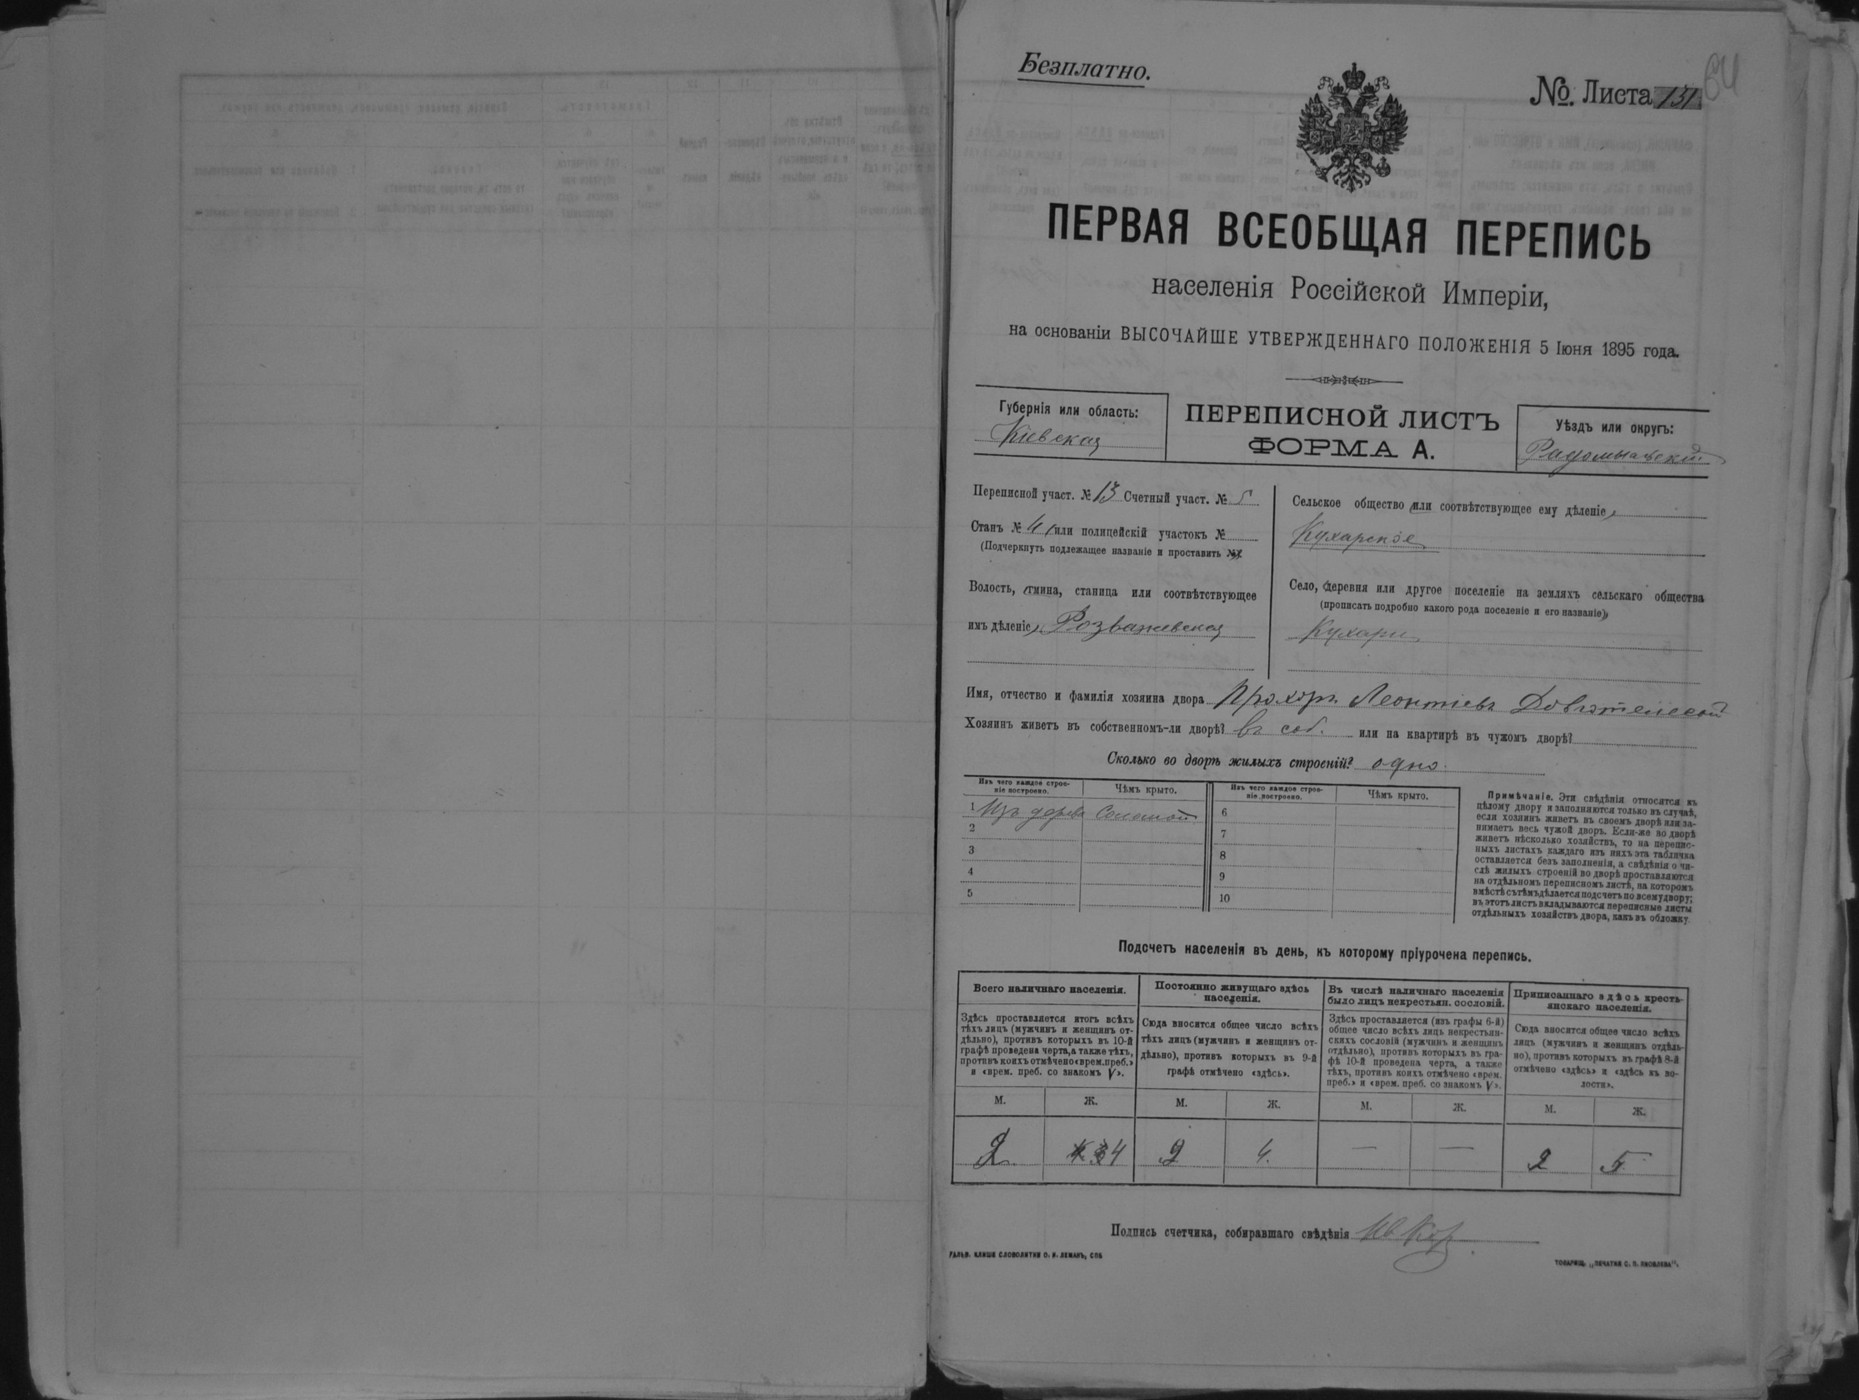 Безплатно.
№. Листа 131
64
ПЕРВАЯ ВСЕОБЩАЯ ПЕРЕПИСЬ
населенія Россійской Имперіи,
на основаніи ВЫСОЧАЙШЕ УТВЕРЖДЕННАГО ПОЛОЖЕНІЯ 5 Іюня 1895 года.
Губернія или область:
Кіевская
ПЕРЕПИСНОЙ ЛИСТЪ
ФОРМА А.
Уѣздъ или округъ:
Радомысльскій
Переписной участ. № 13 Счетный участ. № 5
Станъ № 4 или полицейскій участокъ №
(Подчеркнуть подлежащее названіе и проставить №)
Волость, гмина, станица или соотвѣтствующее
имъ дѣленіе, Розважевская
Сельское общество или соотвѣтствующее ему дѣленіе,
Кухарское
Село, деревня или другое поселеніе на земляхъ сельскаго общества
(прописать подробно какого рода поселеніе и его названіе)
Кухари
Имя, отчество и фамилія хозяина двора Прохоръ Леонтіевъ
Хозяинъ живетъ въ собственномъ-ли дворѣ? въ соб. или на квартирѣ въ чужомъ дворѣ?
Сколько во дворѣ жилыхъ строеній? одно.
Изъ чего каждое строе-
ніе построено.
Чѣмъ крыто.
Изъ чего каждое строе-
ніе построено.
Чѣмъ крыто.
1 Изъ дерева Соломой
2
3
4
5
6
7
8
9
10
Примѣчаніе. Эти свѣдѣнія относятся къ
цѣлому двору и заполняются только въ случаѣ,
если хозяинъ живетъ въ своемъ дворѣ или за-
нимаетъ весь чужой дворъ. Если-же во дворѣ
живетъ нѣсколько хозяйствъ, то на перепис-
ныхъ листахъ каждаго изъ нихъ эта табличка
оставляется безъ заполненія, а свѣдѣнія о чи-
слѣ жилыхъ строеній во дворѣ проставляются
на отдѣльномъ переписномъ листѣ, на которомъ
вмѣстѣ съ тѣмъ дѣлается подсчетъ по всему двору;
въ этотъ листъ вкладываются переписные листы
отдѣльныхъ хозяйствъ двора, какъ въ обложку.
Подсчетъ населенія въ день, къ которому пріурочена перепись.
Всего наличнаго населенія.
Здѣсь проставляется итогъ всѣхъ
тѣхъ лицъ (мужчинъ и женщинъ от-
дѣльно), противъ которыхъ въ 10-й
графѣ проведена черта, а также тѣхъ,
противъ коихъ отмѣчено «врем. преб.»
и «врем. преб. со знакомъ V».
Постоянно живущаго здѣсь
населенія.
Сюда вносится общее число всѣхъ
тѣхъ лицъ (мужчинъ и женщинъ от-
дѣльно), противъ которыхъ въ 9-й
графѣ отмѣчено «здѣсь».
Въ числѣ наличнаго населенія
было лицъ некрестьян. сословій.
Здѣсь проставляется (изъ графы 6-й)
общее число всѣхъ лицъ некрестьян-
скихъ сословій (мужчинъ и женщинъ
отдѣльно), противъ которыхъ въ гра-
фѣ 10-й проведена черта, а также
тѣхъ, противъ коихъ отмѣчено «врем.
преб.» и «врем. преб. со знакомъ V».
Приписаннаго здѣсь кресть-
янскаго населенія.
Сюда вносится общее число всѣхъ
лицъ (мужчинъ и женщинъ отдѣль-
но), противъ которыхъ въ графѣ 8-й
отмѣчено «здѣсь» и «здѣсь въ во-
лости».
М. Ж. М. Ж. М. Ж. М. Ж.
2 4 2 4. — — 2 5
Подпись счетчика, собиравшаго свѣдѣнія
ГАЛЬВ. КЛИШЕ СЛОВОЛИТНИ О. И. ЛЕМАНЪ, СПБ
ТОВАРИЩ. „ПЕЧАТНЯ С. П. ЯКОВЛЕВА".